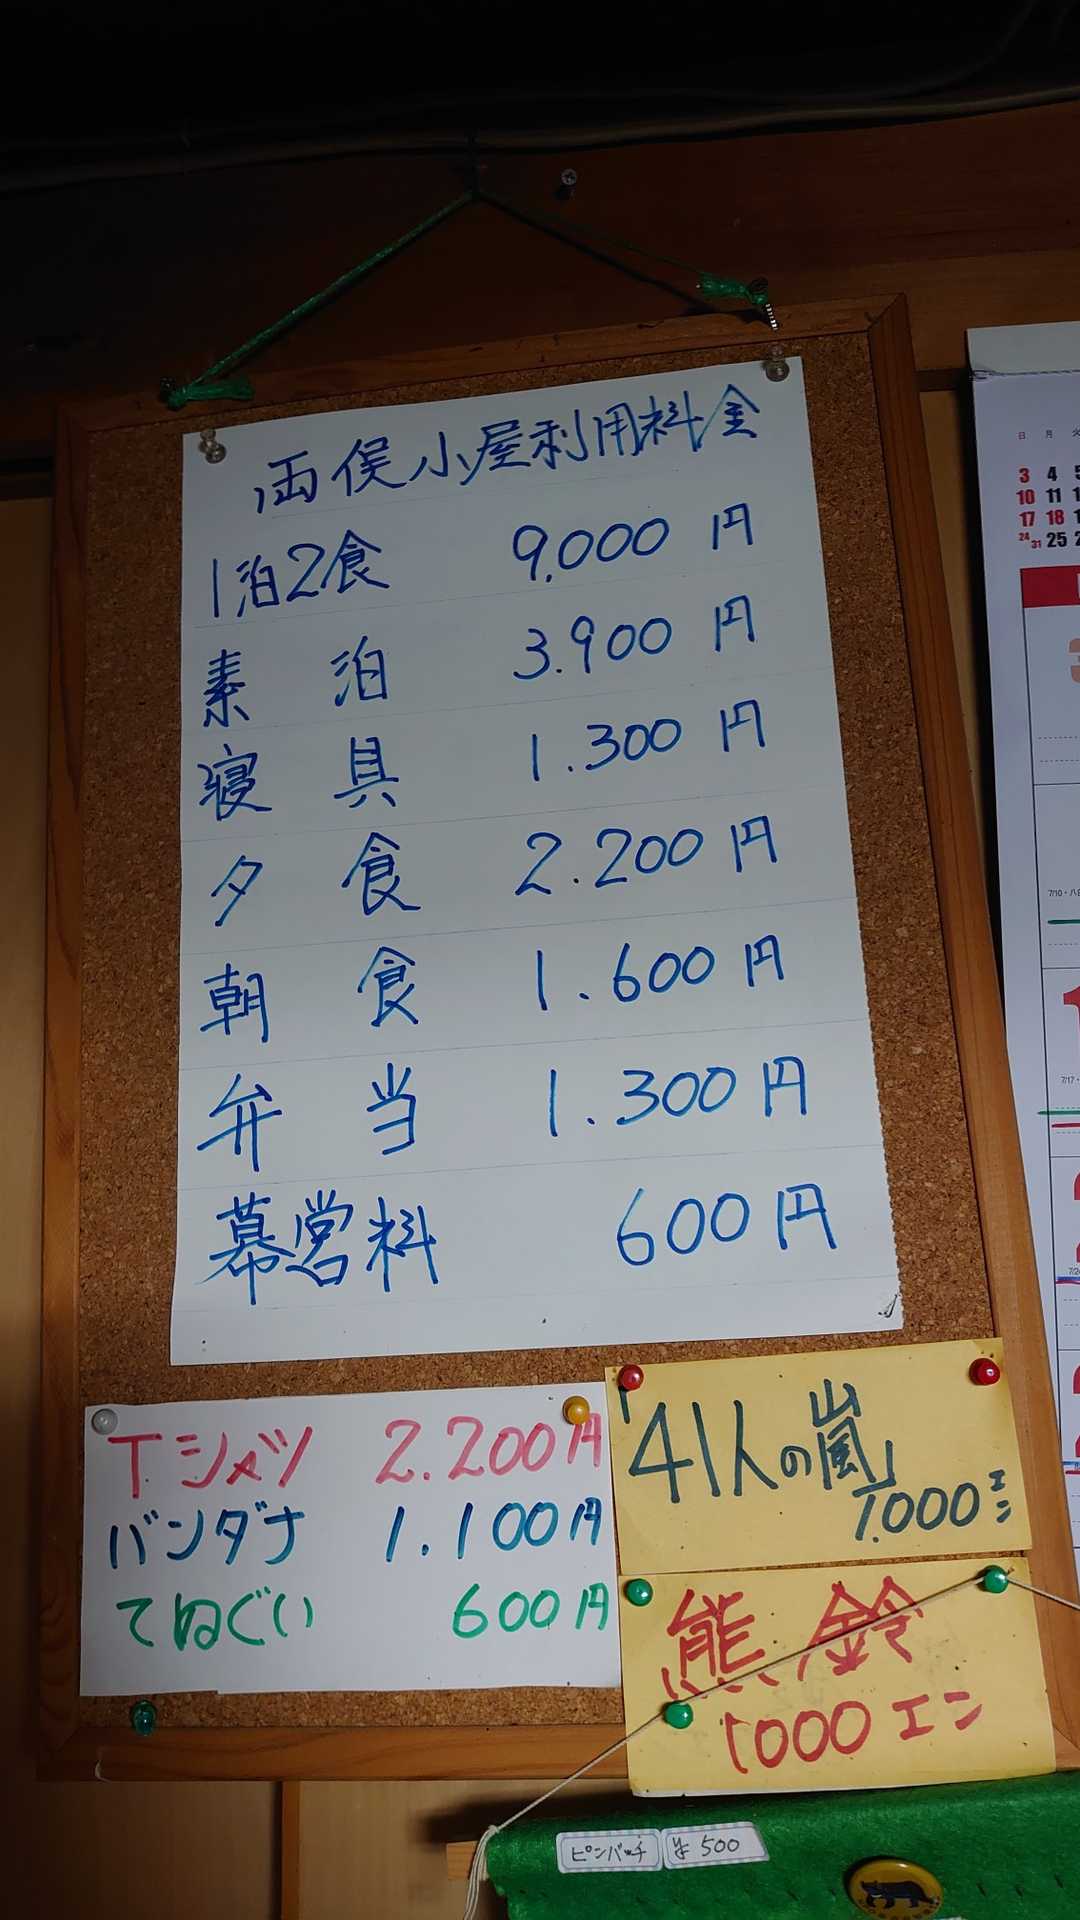 両俣小屋利用料金
1泊2食 9,000円
素泊 3.900円
寝具 1.300円
夕食 2.200円
朝食 1.600円
弁当 1.300円
幕営料 600円
Tシャツ 2.200円
バンダナ 1.100円
てぬぐい 600円
「41人の嵐」
1.000エン
熊鈴
1000エン
ピンバッチ ¥500
日 月 火
3 4 5
10 11
17 18
24 31 25
7/10・八
7/17・